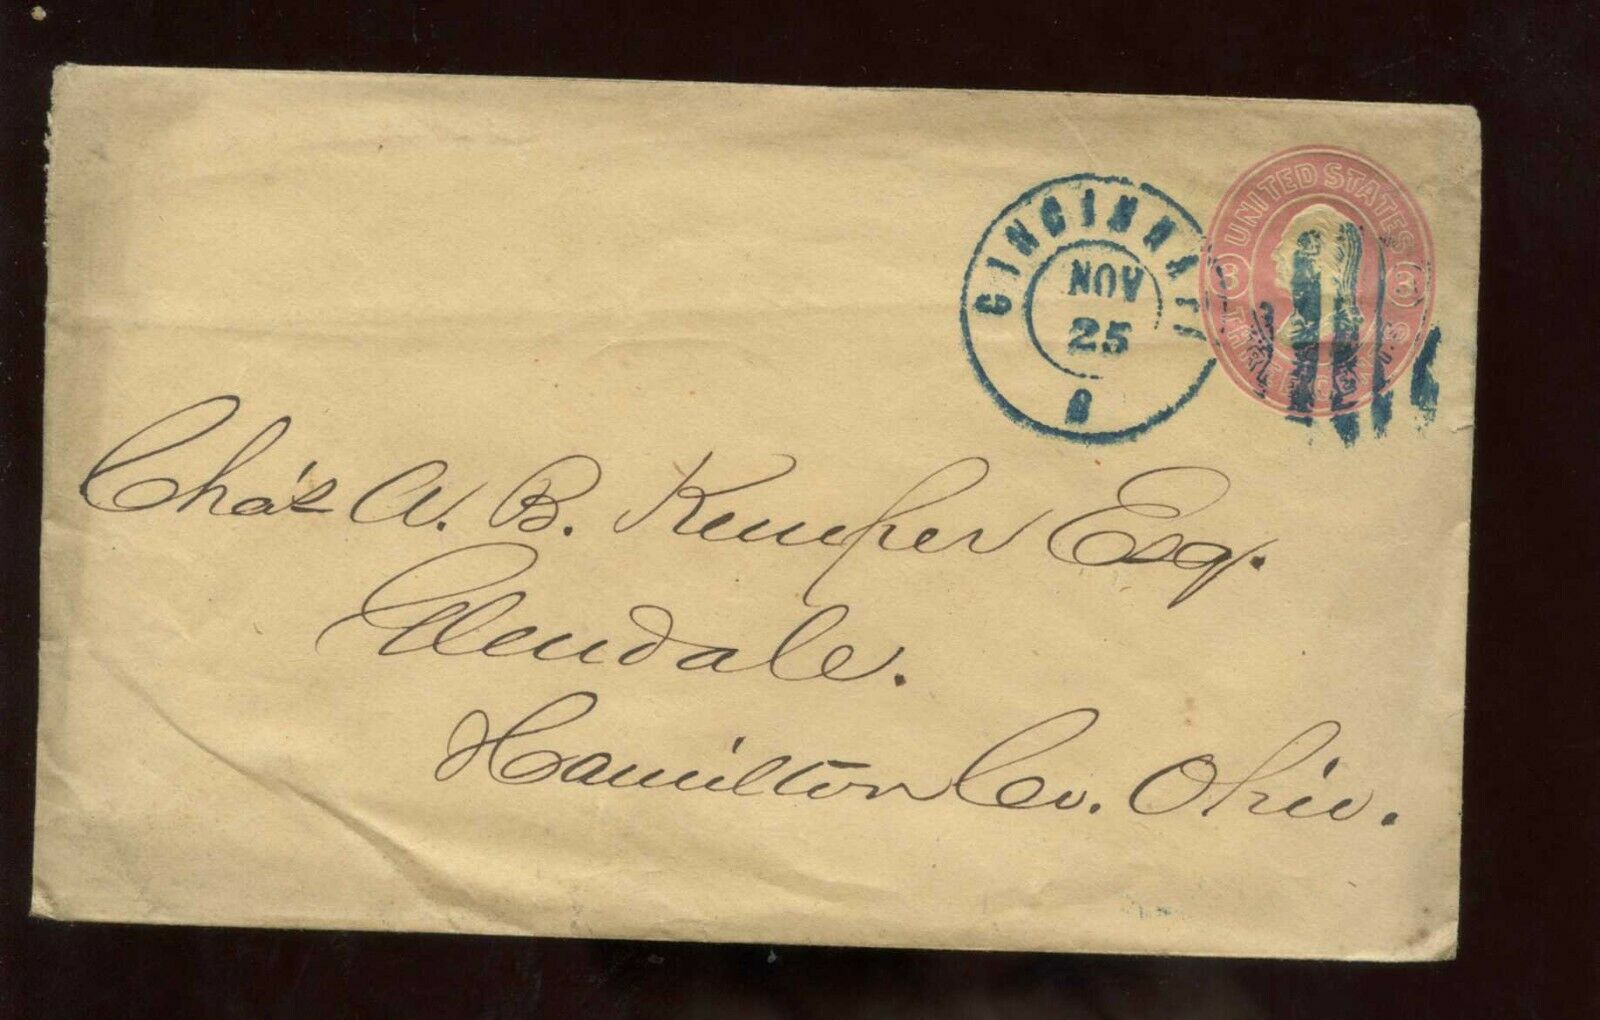 CINCINNATI
NOV
25
8
UNITED STATES
3 3
THREE CENTS
Cha's A. B. Kemper Esq.
Glendale.
Hamilton Co. Ohio.